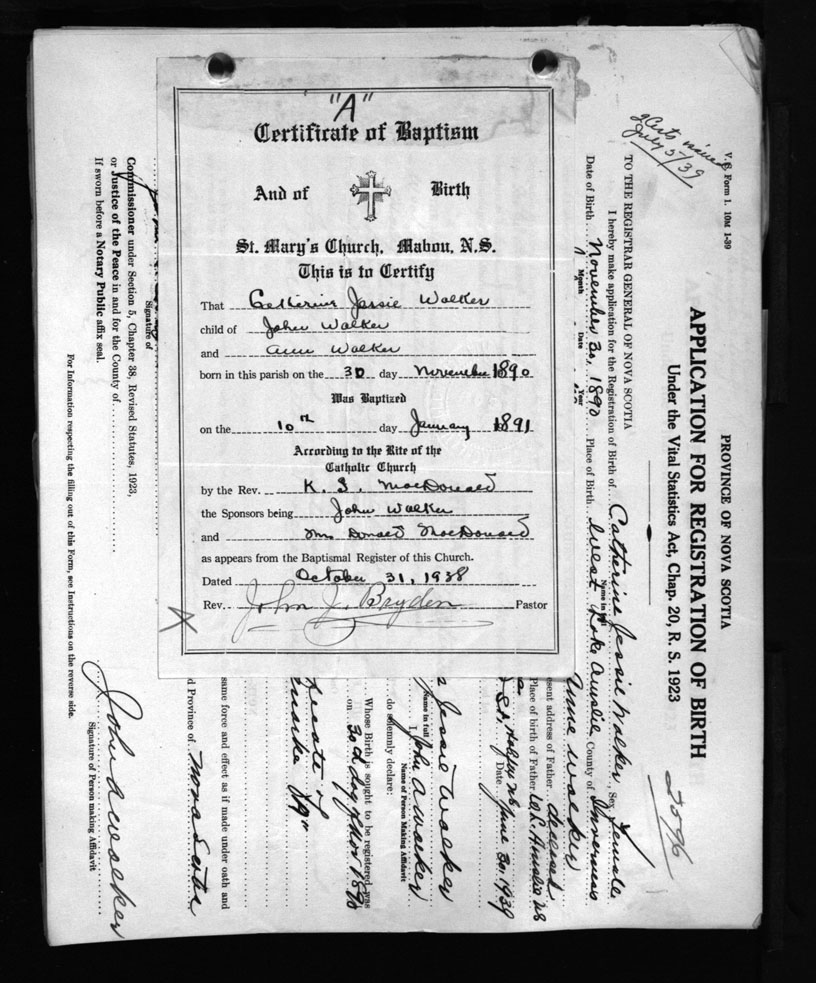 "A"
Certificate of Baptism
And of Birth
St. Mary's Church, Mabou, N.S.
This is to Certify
That Catherine Jessie Walker
child of John Walker
and Ann Walker
born in this parish on the 30 day November 1890
Was Baptized
on the 10th day January 1891
According to the Rite of the
Catholic Church
by the Rev. K. J. MacDonald
the Sponsors being John Walker
and Mrs Donald MacDonald
as appears from the Baptismal Register of this Church.
Dated October 31, 1938
Rev. John J. Bryden Pastor
X
July 5/39
V. S. Form 1. 10M 1-39
PROVINCE OF NOVA SCOTIA
APPLICATION FOR REGISTRATION OF BIRTH
Under the Vital Statistics Act, Chap. 20, R. S. 1923
2596
TO THE REGISTRAR GENERAL OF NOVA SCOTIA
I hereby make application for the Registration of Birth of Catherine Jessie Walker, Sex Female
Name in full
Date of Birth November 30, 1890 Place of Birth West Lake Ainslie County of Inverness
Month Date Year
Anne Walker
esent address of Father deceased
Place of birth of Father W. L. Ainslie N S
Halifax N S Date June 30, 1939
Jessie Walker
Name in full
I, John A Walker
Name of Person Making Affidavit
do solemnly declare:
Whose Birth is sought to be registered was
on 30th day of Nov 1890
"A"
same force and effect as if made under oath and
d Province of Nova Scotia
John A Walker
Signature of Person making Affidavit
Signature of
Commissioner under Section 5, Chapter 38, Revised Statutes, 1923,
or Justice of the Peace in and for the County of
If sworn before a Notary Public affix seal.
For Information respecting the filling out of this Form, see Instructions on the reverse side.